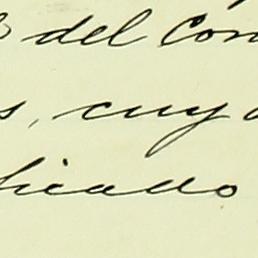 del Con
s, cuya
licado